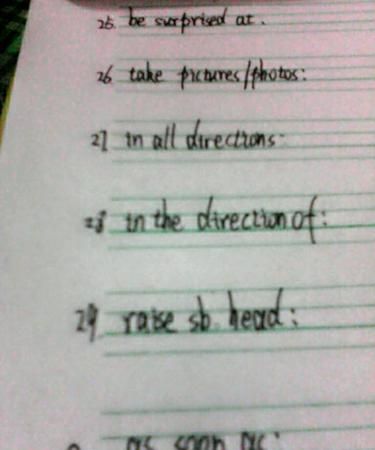 25. be surprised at.
26. take pictures/photos:
27 in all directions:
28 in the direction of:
29. raise sb. head:
as soon as: